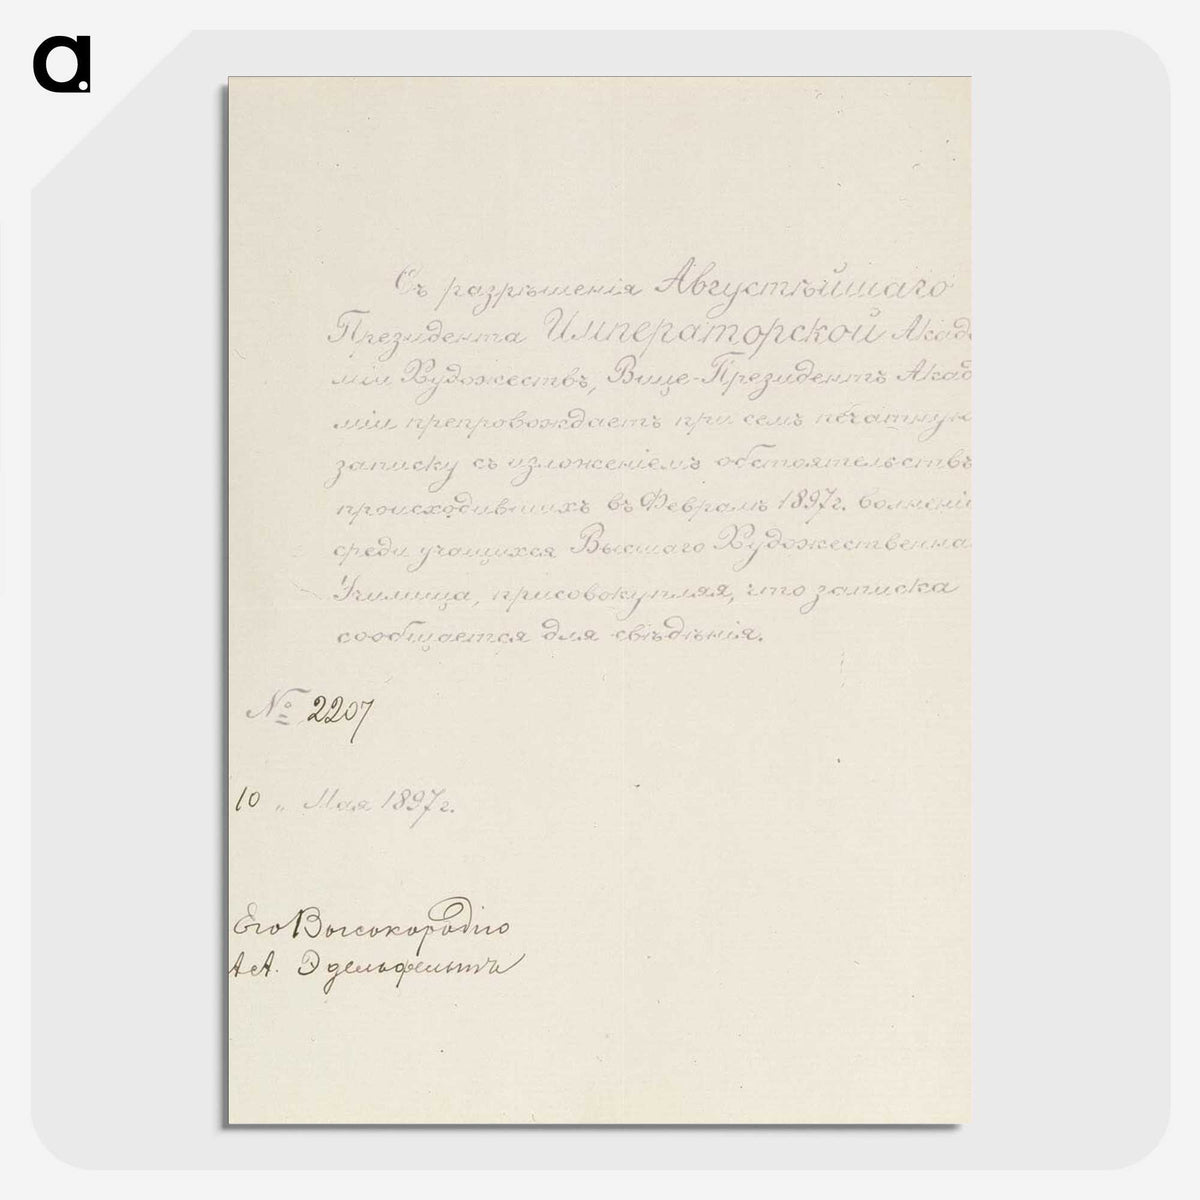 a.
Съ разрѣшенія Августѣйшаго
Президента Императорской Акаде
міи Художествъ, Вице-Президентъ Акаде
міи препровождаетъ при семъ печатную
записку съ изложеніемъ обстоятельствъ
происходившихъ въ Февралѣ 1897 г. волненій
среди учащихся Высшаго Художественна
Училища, присовокупляя, что записка
сообщается для свѣдѣнія.
№ 2207
10 „ Мая 1897 г.
Его Высокородію
А. А. Эдельфельтъ